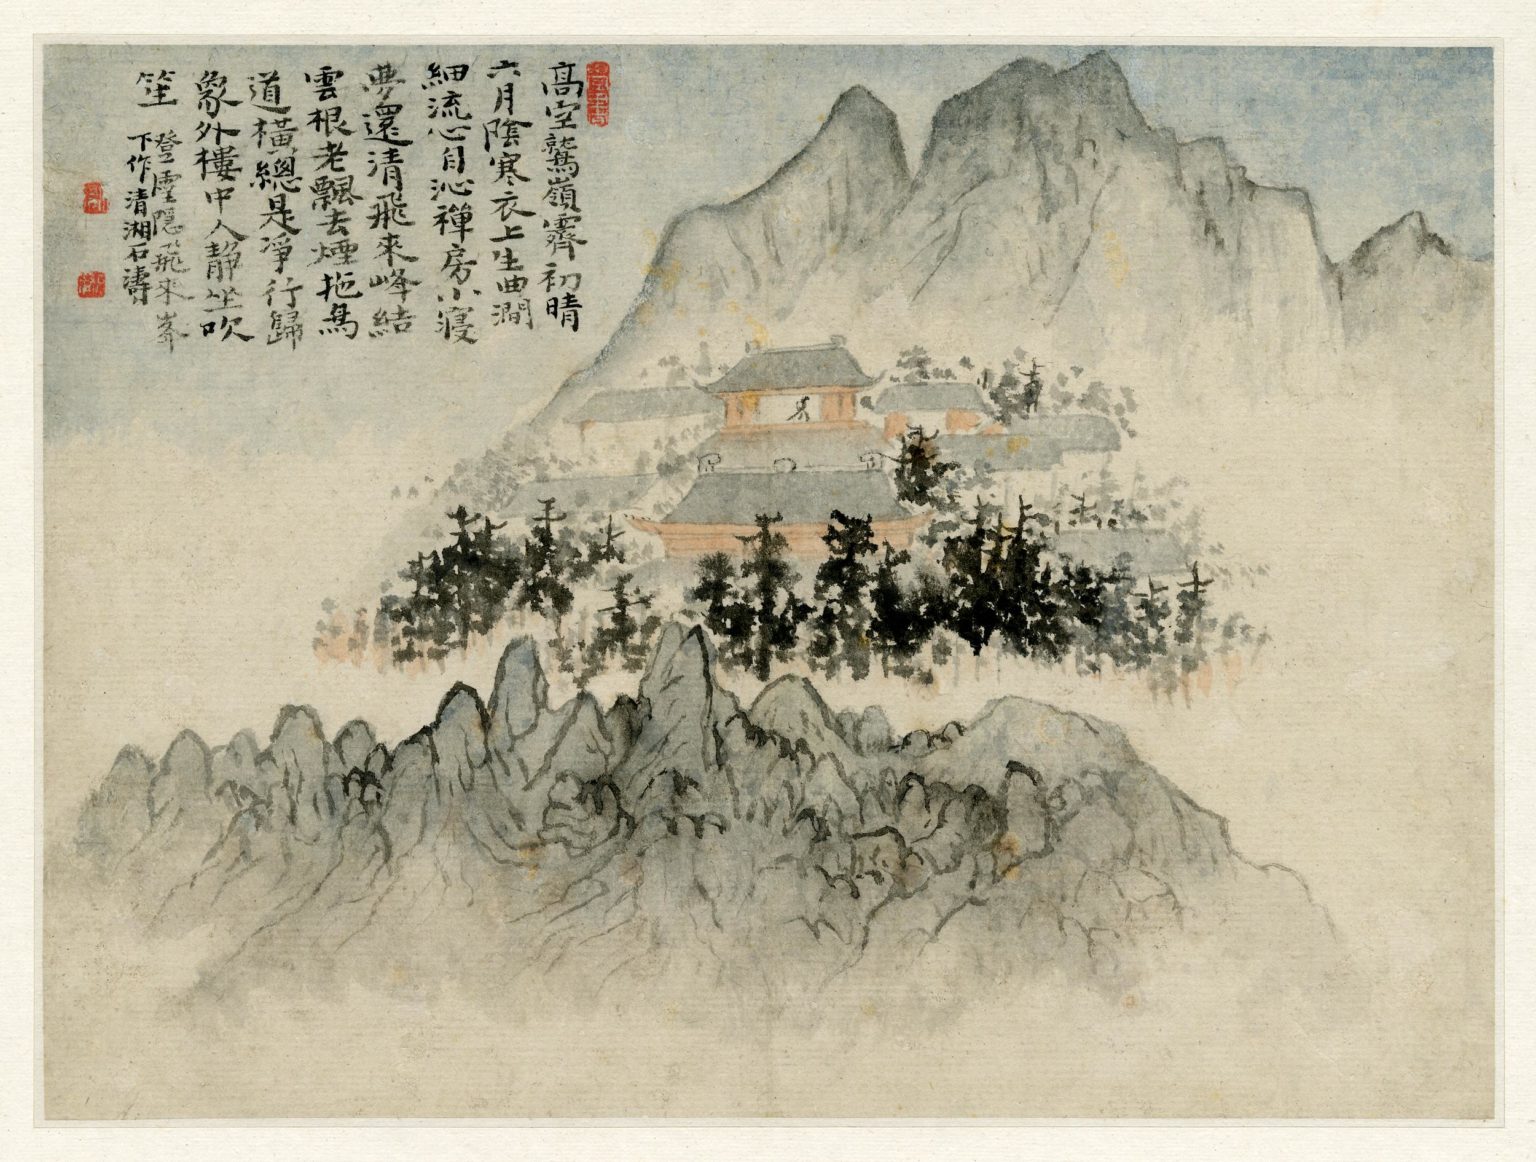 高空鷲嶺霽初晴
六月陰寒衣上生曲澗
細流心自沁禪房小寢
夢還清飛來峰結
雲根老飄去煙拖鳥
道橫總是淨行歸
象外樓中人靜坐吹
笙
登靈隱飛來峯
下作清湘石濤